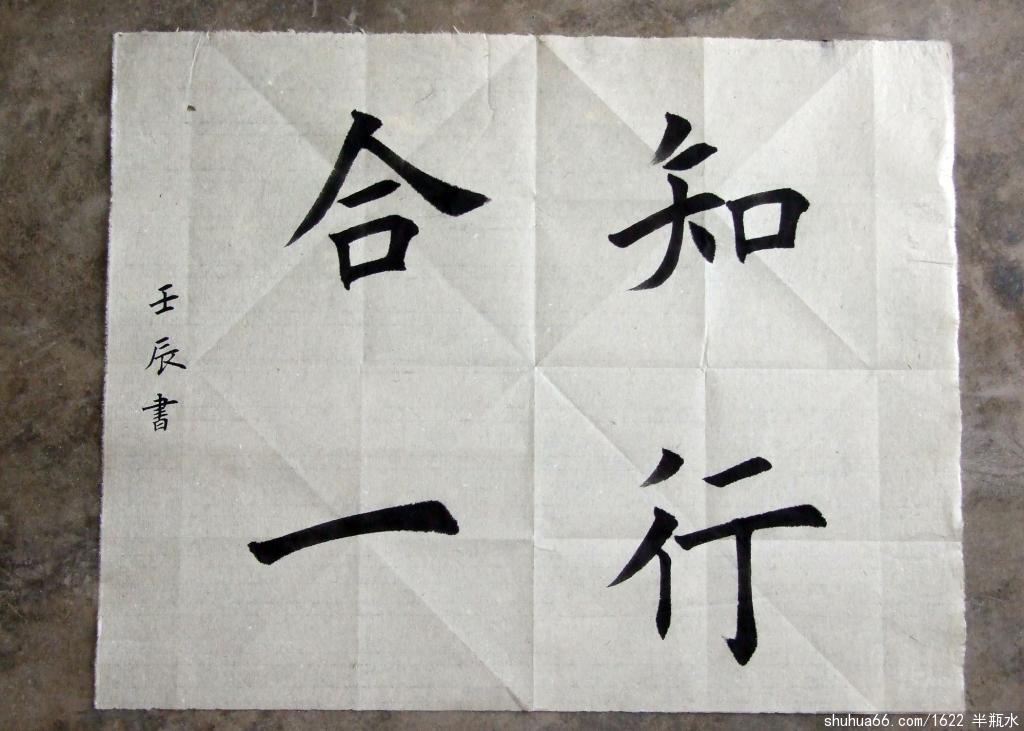 知行
合一
壬辰書
shuhua66.com/1622 半瓶水